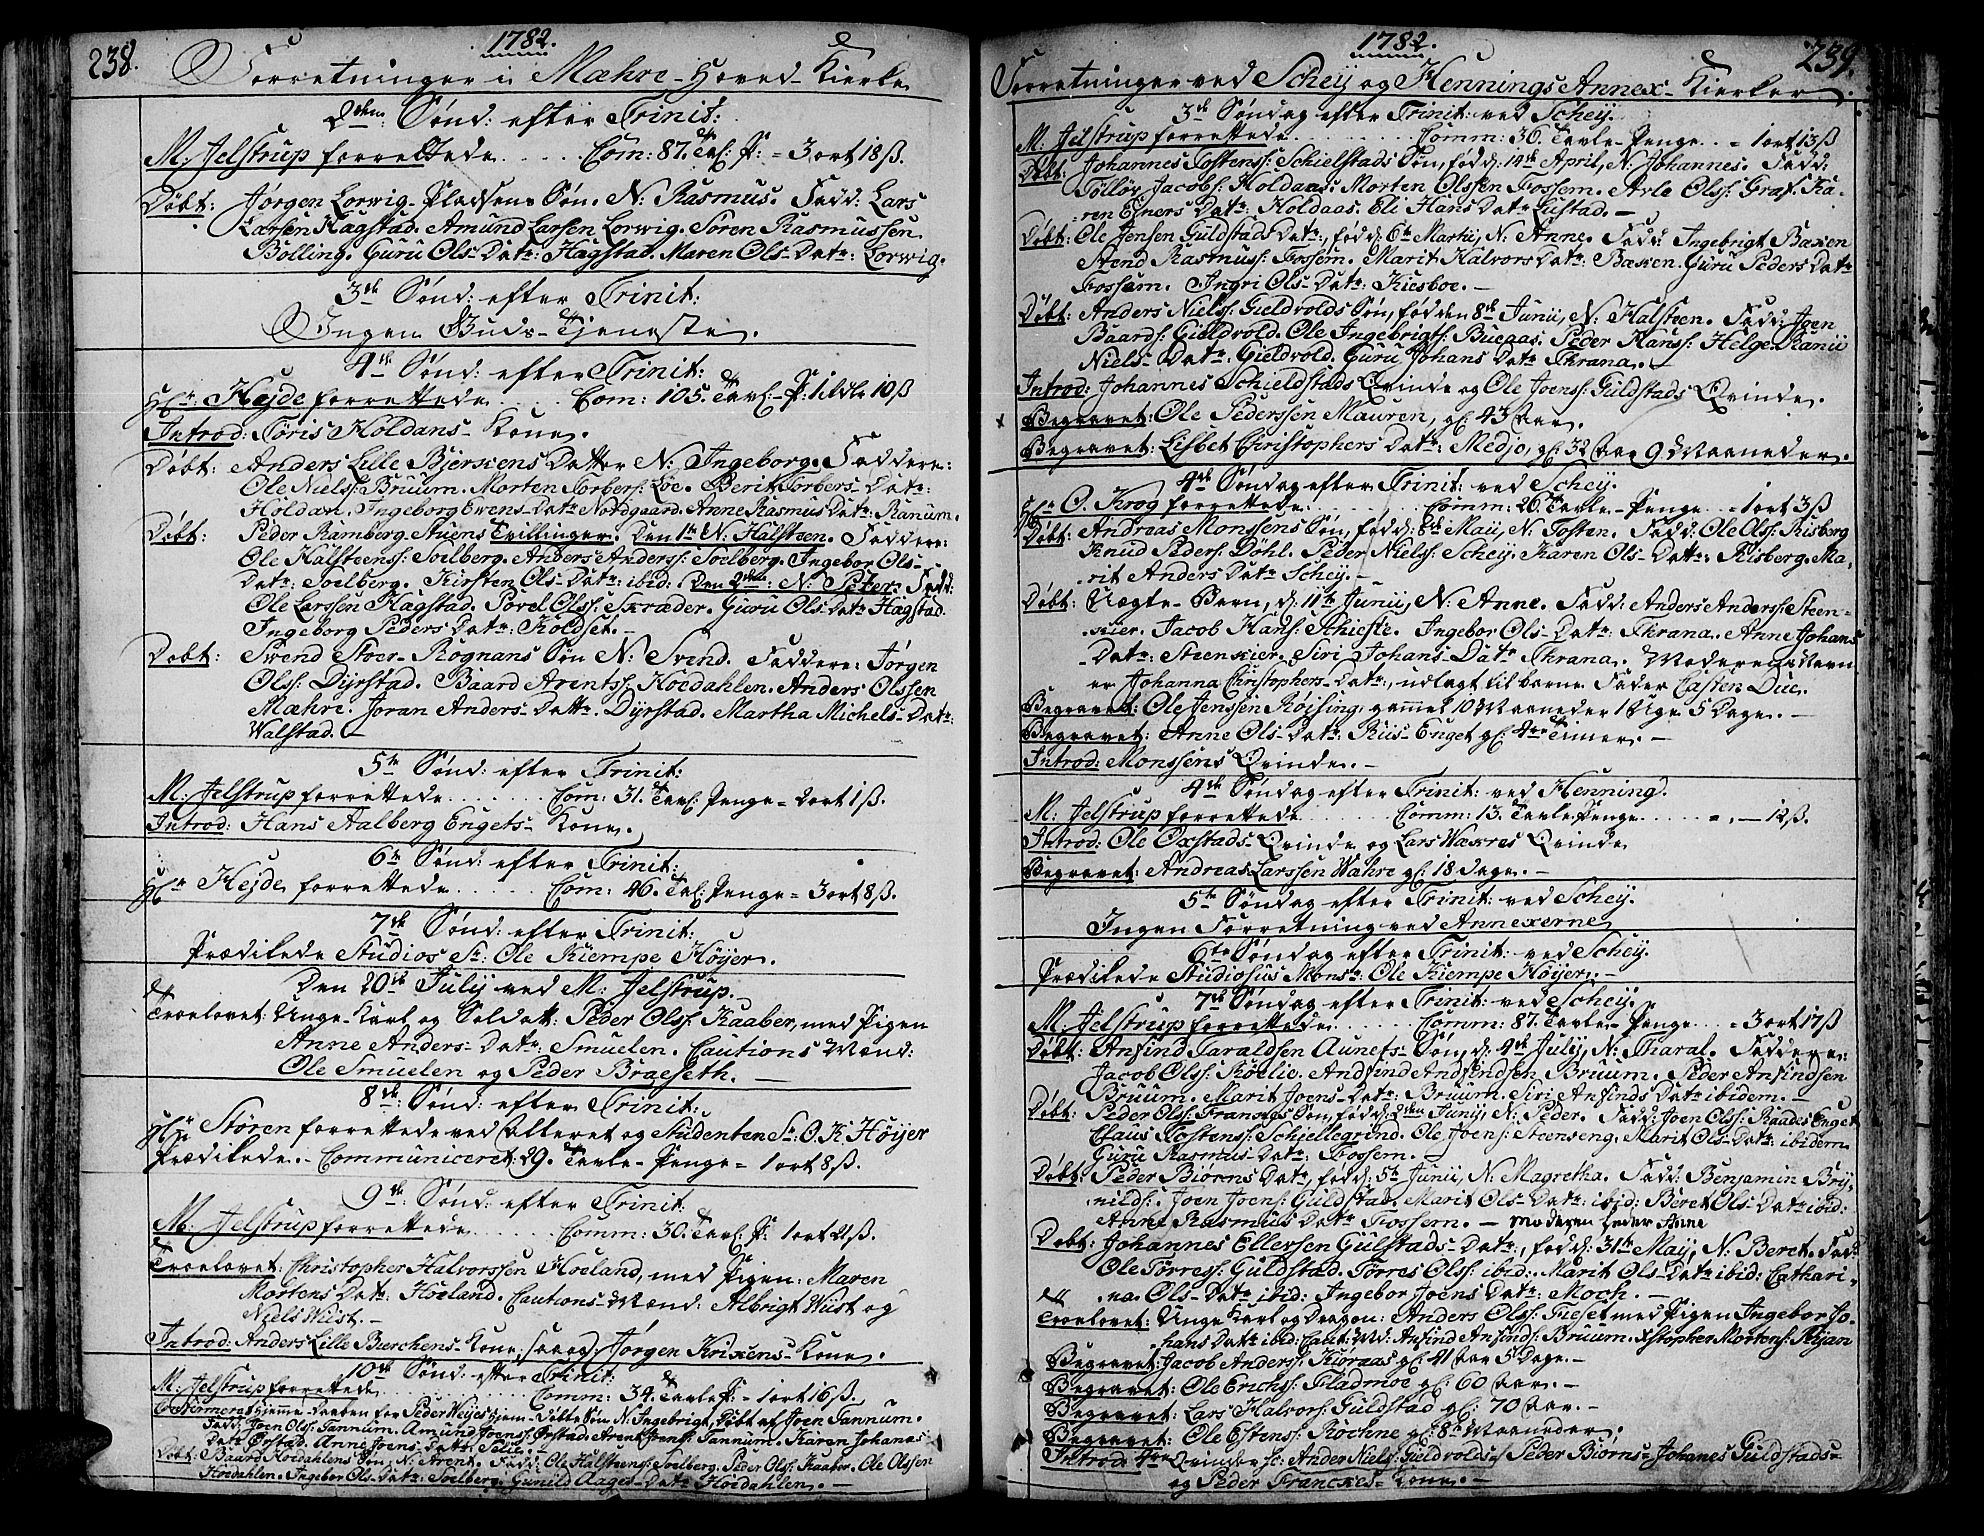 238.
1782.
Forretninger i Mæhre-Hoved-Kierke
2den Sønd: efter Trinit:
M. Jelstrup forrettede.... Com: 87. Tavl: P: = 3 ort 18 ß.
Døbt: Jørgen Lorwig-Pladsens Søn. N: Rasmus. Fadd: Lars
Larsen Hagstad. Amund Larsen Lorwig. Søren Rasmussen
Bølling. Guru Ols-Datr: Hagstad. Maren Ols-Datr: Lorwig.
3de Sønd: efter Trinit:
Ingen Guds-Tjeneste.
4de Sønd: efter Trinit:
Hr: Hejde forrettede..... Com: 105. Tavl:-P: 1 rdlr 10 ß
Introd: Tøris Holdans-Kone.
Døbt: Anders Lille Bjerxens Datter N: Ingeborg. Faddere:
Ole Niels: Bruum. Morten Torbers: Loe. Berit Torbers-Datr:
Holdan. Ingeborg Ewens-Datr Nordgaard. Anne Rasmus Datr: Ranum.
Døbt: Peder Ramberg Stuens Tvillinger. Den 1te N: Halsteen. Faddere:
Ole Halsteens: Soelberg. Anders Anderss: Soelberg. Ingebor Ols-
Datr: Soelberg. Kirsten Ols-Datr: ibid: Den 2den: N: Peter. Fadd:
Ole Larssen Hagstad. Povel Olss: Skræder. Guru Ols Datr Hagstad.
Ingeborg Peders Datr: Koldset.-
Døbt: Svend Stoer-Rognans Søn N: Svend. Faddere: Jørgen
Olss: Dyrstad. Baard Arents: Hoedahlen. Anders Olssen
Mæhre. Joran Anders-Dattr. Dyrstad. Martha Michels-Datr:
Walstad.-
5te Sønd: efter Trinit:
M. Jelstrup forrettede....... Com: 31. Tavl: Penge = 2 ort 1 ß.
Introd: Hans Aalberg Engets-Kone.
6te Sønd: efter Trinit:
Hr Hejde forrettede...... Com: 46. Tavl: Penge = 3 ort 8 ß.
7de Sønd: efter Trinit:
Prædikede Studios Sr: Ole Kiempe Høyer.
Den 20de July ved M: Jelstrup.
Troelovet: Unge-Karl og Soldatt: Peder Olss: Kaaber, med Pigen
Anne Anders-Datr: Smuelen. Cautions Mænd:
Ole Smuelen og Peder Braeseth.-
8de Sønd: efter Trinit:
Hr: Støren forrettede ved Alteret og Studenten Sr: O. K. Høyer
Prædikede.- Communiceret: 29. Tavle-Penge = 1 ort 8 ß.
9de Sønd: efter Trinit:
M: Jelstrup forrettede...... Comm: 30. Tavl: P: 1 ort 21 ß.
Troelovet: Christopher Halvorssen Hoeland, med Pigen: Maren
Mortens Datr: Hoeland. Cautions-Mænd: Albrigt Wüst og
Niels Wüst.-
Introd: Anders Lille Berchens-Kone, saa og: Jørgen Krixens-Kone.
10de Sønd: efter Trinit:
M. Jelstrup forrettede........ Comm: 34. Tavle P: = 1 ort 16 ß.
Hiemme-Daaben for Peder Weyes hjem-Døbte Søn N: Ingebrigt, Døbt af Joen Tannum.
Fadd: Joen Olss: Tannum. Amund Joenss: Ørstad. Arent Arents: Tannum. Karen Johanes
Datr Ørstad. Anne Joens Datr
Døbt: Baard Hoedahlens Søn N: Arent. Fadd: Ole Halsteens: Soelberg. Peder Olss: Kaaber. Ole Olssen
Hoedahlen. Ingebor Ols-Datr: Soelberg. Gunild Aages-Datr Hoedahlen.-
239.
1782.
Forretninger ved Schey og Hennings Annex-Kierker.
3de Søndag efter Trinit: ved Schey.
M. Jelstrup forrettede......... Comm: 36. Tavle-Penge.. = 1 ort 13 ß
Døbt: Johannes Tostens: Schielstads Søn, fødd: 14de April, N. Johannes. Fadd:
Tølløv Jacobs: Holdaas. Morten Olssen Fossem. Arle Olss: Graf. Ka-
ren Einers Datr: Holdaas. Eli Hans Datr Lustad.-
Døbt: Ole Jensen Guldstads Datr:, fødd: 6te Martii, N: Anne. Fadd: Ingebrigt Baxen
Svend Rasmuss: Fossem. Marit Halvors Datr: Baxen. Guru Peders Datr
Fossem. Ingri Ols-Datr: Kiesboe.-
Døbt: Anders Niels: Gieldvolds Søn, fød den 8de Junii, N: Halsteen. Fadd: Joen
Baards: Gieldvold. Ole Ingebrigts: Bueaas. Peder Hans: Helge-Ranii
Niels-Datr. Gieldvold. Guru Johans Datr Thrana.-
Introd: Johannes Schieldstads Qvinde og Ole Joenss: Guldstads Qvinde.
Begravet: Ole Pederssen Mauren, gl: 43 Aar.
Begravet: Lisbet Christophers Datr: Medjo, gl: 32 Aar 9 Maaneder.
4de Søndag efter Trinit: ved Schey.
Hr O. Krog forrettede......... Comm: 26. Tavle-Penge = 1 ort 3 ß
Døbt: Andreas Monssens Søn, fødd: 8de Maii, N: Tosten. Fadd: Ole Olss: Risberg
Knud Peders: Døhl. Peder Nielss: Schey. Karen Ols-Datr: Risberg. Ma-
rit Anders Datr Schey.-
Døbt: Uægte-Barn, d: 11te Junii, N: Anne. Fadd: Anders Anderss: Steen-
kier. Jacob Hans: Schiefte. Ingebor Ols-Datr: Thrana. Anne Johans
-Datr: Steenkier. Siri Johans-Datr Thrana. Moderens Navn
er Johanna Christophers-Datr:, udlagt til barne Fader Casten Due.
Begravet: Ole Jenssen Røising, gammel 10 Maaneder 1 Uge 5 Dage.-
Begravet: Anne Ols-Datr: Riis-Enget gl: 4re Timer.-
Introd: Monssens Qvinde.-
4de Søndag efter Trinit: ved Henning.
M. Jelstrup forrettede........ Comm: 13. Tavle Penge...... = .- 12 ß.
Introd: Ole Oxstads-Qvinde og Lars Waxres Qvinde
Begravet: Andreas Larssen Wahre gl: 18 Dage.-
5te Søndag efter Trinit: ved Schey.
Ingen Forretning ved Annexerne
6te Søndag efter Trinit: ved Schey.
Prædikede Studiosus Monsr: Ole Kiempe Høyer.-
7de Søndag efter Trinit: ved Schey.
M. Jelstrup forrettede...... Comm: 87. Tavle-Penge.. = 3 ort 17 ß
Døbt: Anfind Taraldsen Aunets-Søn, d: 4de July, N: Tharal. Faddere:
Jacob Olss: Røelie. Andfind Andfindsen Bruum. Peder Anfindsen
Bruum. Marit Joens-Datr: Bruum. Siri Anfinds Datr ibidem.-
Døbt: Peder Olss: Franses Søn, fødd: 2den Junij, N: Peder. Fadd: Joen Olss: Raades Enget
Claus Tostens: Schjellegrind. Ole Joens: Steenseng. Marit Ols-Datr: ibidem
Guru Rasmus-Datr: Fossem.-
Døbt: Peder Biørns Datr, fødd: 5te Junii, N: Magretha. Fadd: Benjamin Bry-
nilds: Joen Joens: Guldstad. Marit Ols-Datr: ibid: Beret Ols-Datr ibid:
Anne Rasmus Datr Fossem.- Moderen heder Anne
Døbt: Johannes Ellefsen Gulstads-Datr:, fødd: 31te May, N: Beret. Fad:
Ole Tørress: Guldstad. Tørres Olss: ibid:. Marit Ols-Datr ibid: Cathari-
na Ols-Datr ibid: Ingebor Joens Datr: Moch.-
Troelovet: Unge Karl og Dragon: Anders Olss: Fieset med Pigen Ingebor Jo-
hans Datr ibid: Caut: Md: Anfind Anfinds: Bruum. Xstopher Mortens: Stejan
Begravet: Jacob Anderss: Kiøraas gl: 41 Aar 5 Dage.-
Begravet: Ole Erichss: Fladmoe gl: 60 Aar.-
Begravet: Lars Halvors: Guldstad gl: 70 Aar.-
Begravet: Ole Estens: Røchne gl: 8te Maaneder.
Introd: 4re Qvinder sc: Ander Niels: Gieldvolds-/ Peder Biorns-Johanes Guldstads-
og Peder Franckes-Kone.-